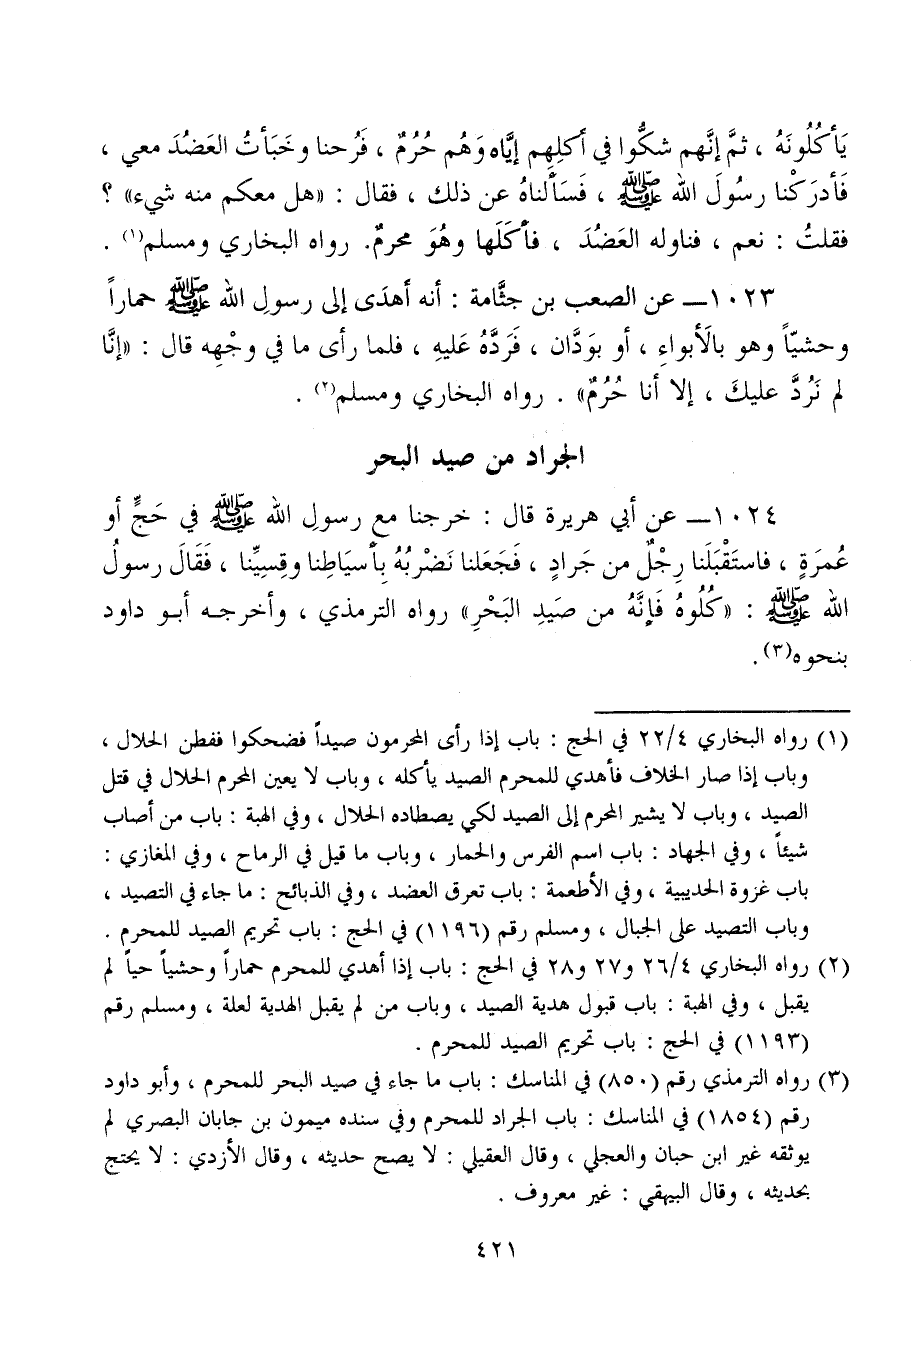 يَأكُلُونَهُ ، ثمَّ إنَّهم شكُّوا في أكلِهِم إيَّاه وَهُم حُرُمٌ ، فَرُحنا وخَبَأتُ العَضُدَ معي ،
فَأدرَكْنا رسُولَ الله ﷺ ، فَسَألناهُ عن ذلك ، فقال : «هل معكم منه شيء» ؟
فقلتُ : نعم ، فناوله العَضُدَ ، فأكَلَها وهُوَ محرمٌ. رواه البخاري ومسلم(١) .
١٠٢٣ــ عن الصعب بن جثَّامة : أنه أهدَى إلى رسولِ الله ﷺ حماراً
وحشيّاً وهو بالَأبواءِ ، أو بوَدَّان ، فَرَدَّهُ عَليهِ ، فلما رأى ما في وجْهِه قال : «إنَّا
لم نَرُدَّ عليكَ ، إلا أنا حُرُمٌ» . رواه البخاري ومسلم(٢) .
الجراد من صيد البحر
١٠٢٤ــ عن أبي هريرة قال : خرجنا مع رسولِ الله ﷺ في حَجٍّ أو
عُمرَةٍ ، فاستَقْبَلَنا رِجْلٌ من جَرادٍ ، فَجَعَلنا نَضْرِبُهُ بِأسيَاطِنا وقِسِيِّنا ، فَقَالَ رسولُ
الله ﷺ : «كُلُوهُ فَإنَّهُ من صَيَدِ البَحْرِ» رواه الترمذي ، وأخرجه أبو داود
بنحوه(٣).
(١) رواه البخاري ٢٢/٤ في الحج : باب إذا رأى المحرمون صيداً فضحكوا ففطن الحلال ،
وباب إذا صار الخلاف فأهدي للمحرم الصيد يأكله ، وباب لا يعين المحرم الحلال في قتل
الصيد ، وباب لا يشير المحرم إلى الصيد لكي يصطاده الحلال ، وفي الهبة : باب من أصاب
شيئاً ، وفي الجهاد : باب اسم الفرس والحمار ، وباب ما قيل في الرماح ، وفي المغازي :
باب غزوة الحديبية ، وفي الأطعمة : باب تعرق العضد ، وفي الذبائح : ما جاء في التصيد ،
وباب التصيد على الجبال ، ومسلم رقم (١١٩٦) في الحج : باب تحريم الصيد للمحرم .
(٢) رواه البخاري ٢٦/٤ و٢٧ و٢٨ في الحج : باب إذا أهدي للمحرم حماراً وحشياً حياً لم
يقبل ، وفي الهبة : باب قبول هدية الصيد ، وباب من لم يقبل الهدية لعلة ، ومسلم رقم
(١١٩٣) في الحج : باب تحريم الصيد للمحرم .
(٣) رواه الترمذي رقم (٨٥٠) في المناسك : باب ما جاء في صيد البحر للمحرم ، وأبو داود
رقم (١٨٥٤) في المناسك : باب الجراد للمحرم وفي سنده ميمون بن جابان البصري لم
يوثقه غير ابن حبان والعجلي ، وقال العقيلي : لا يصح حديثه ، وقال الأزدي : لا يحتج
بحديثه ، وقال البيهقي : غير معروف .
٤٢١